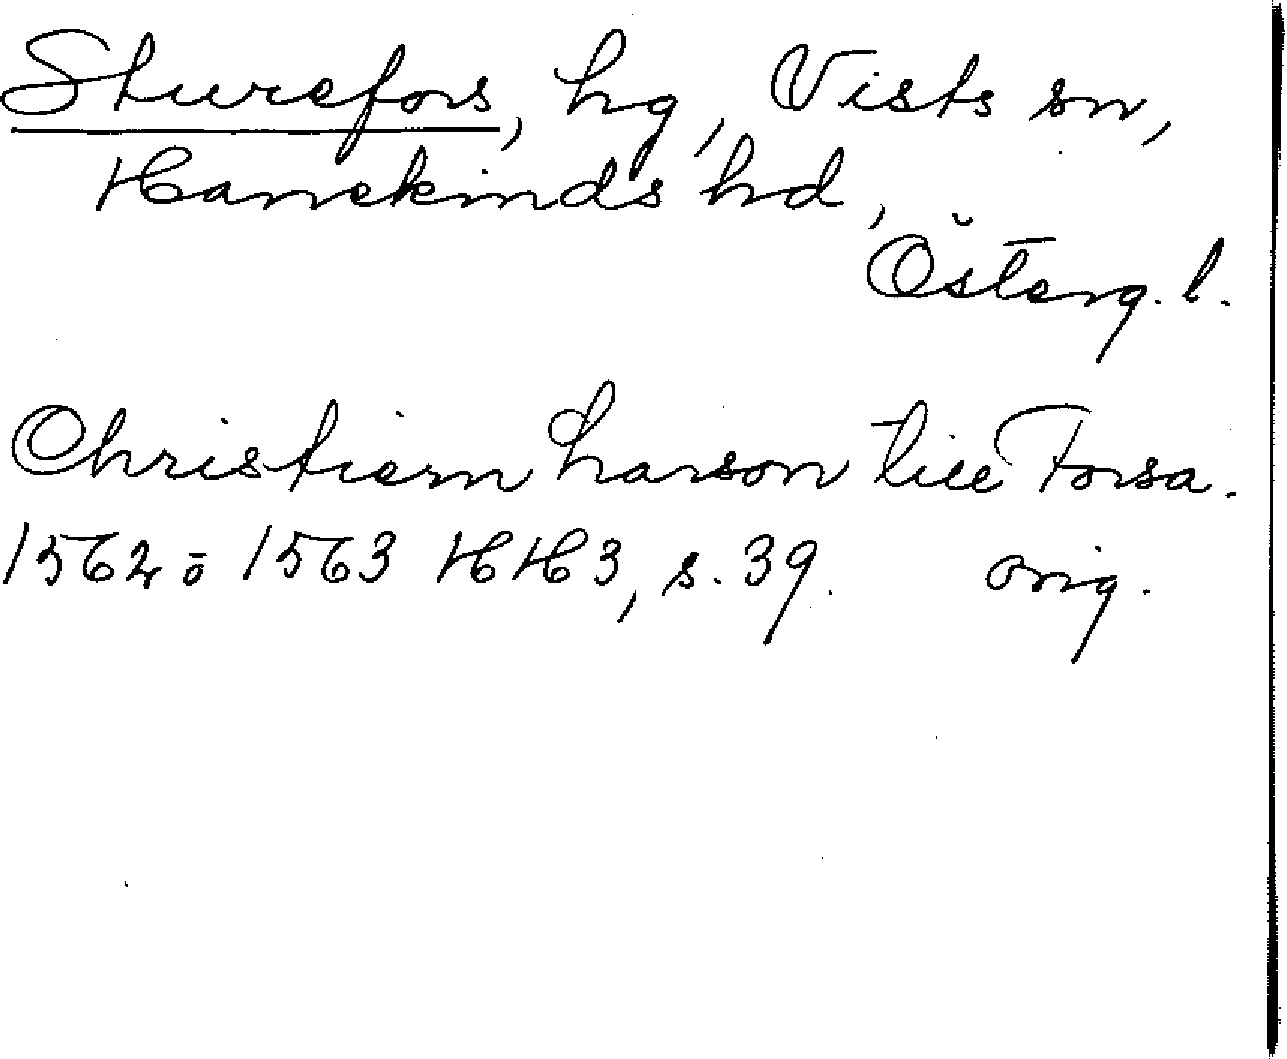 Sturefors, hg, Vists sn,
Hanekinds hd,
Österg. l.
Christiern Larson till Forsa.
1562 ō 1563 HH3, s. 39. orig.